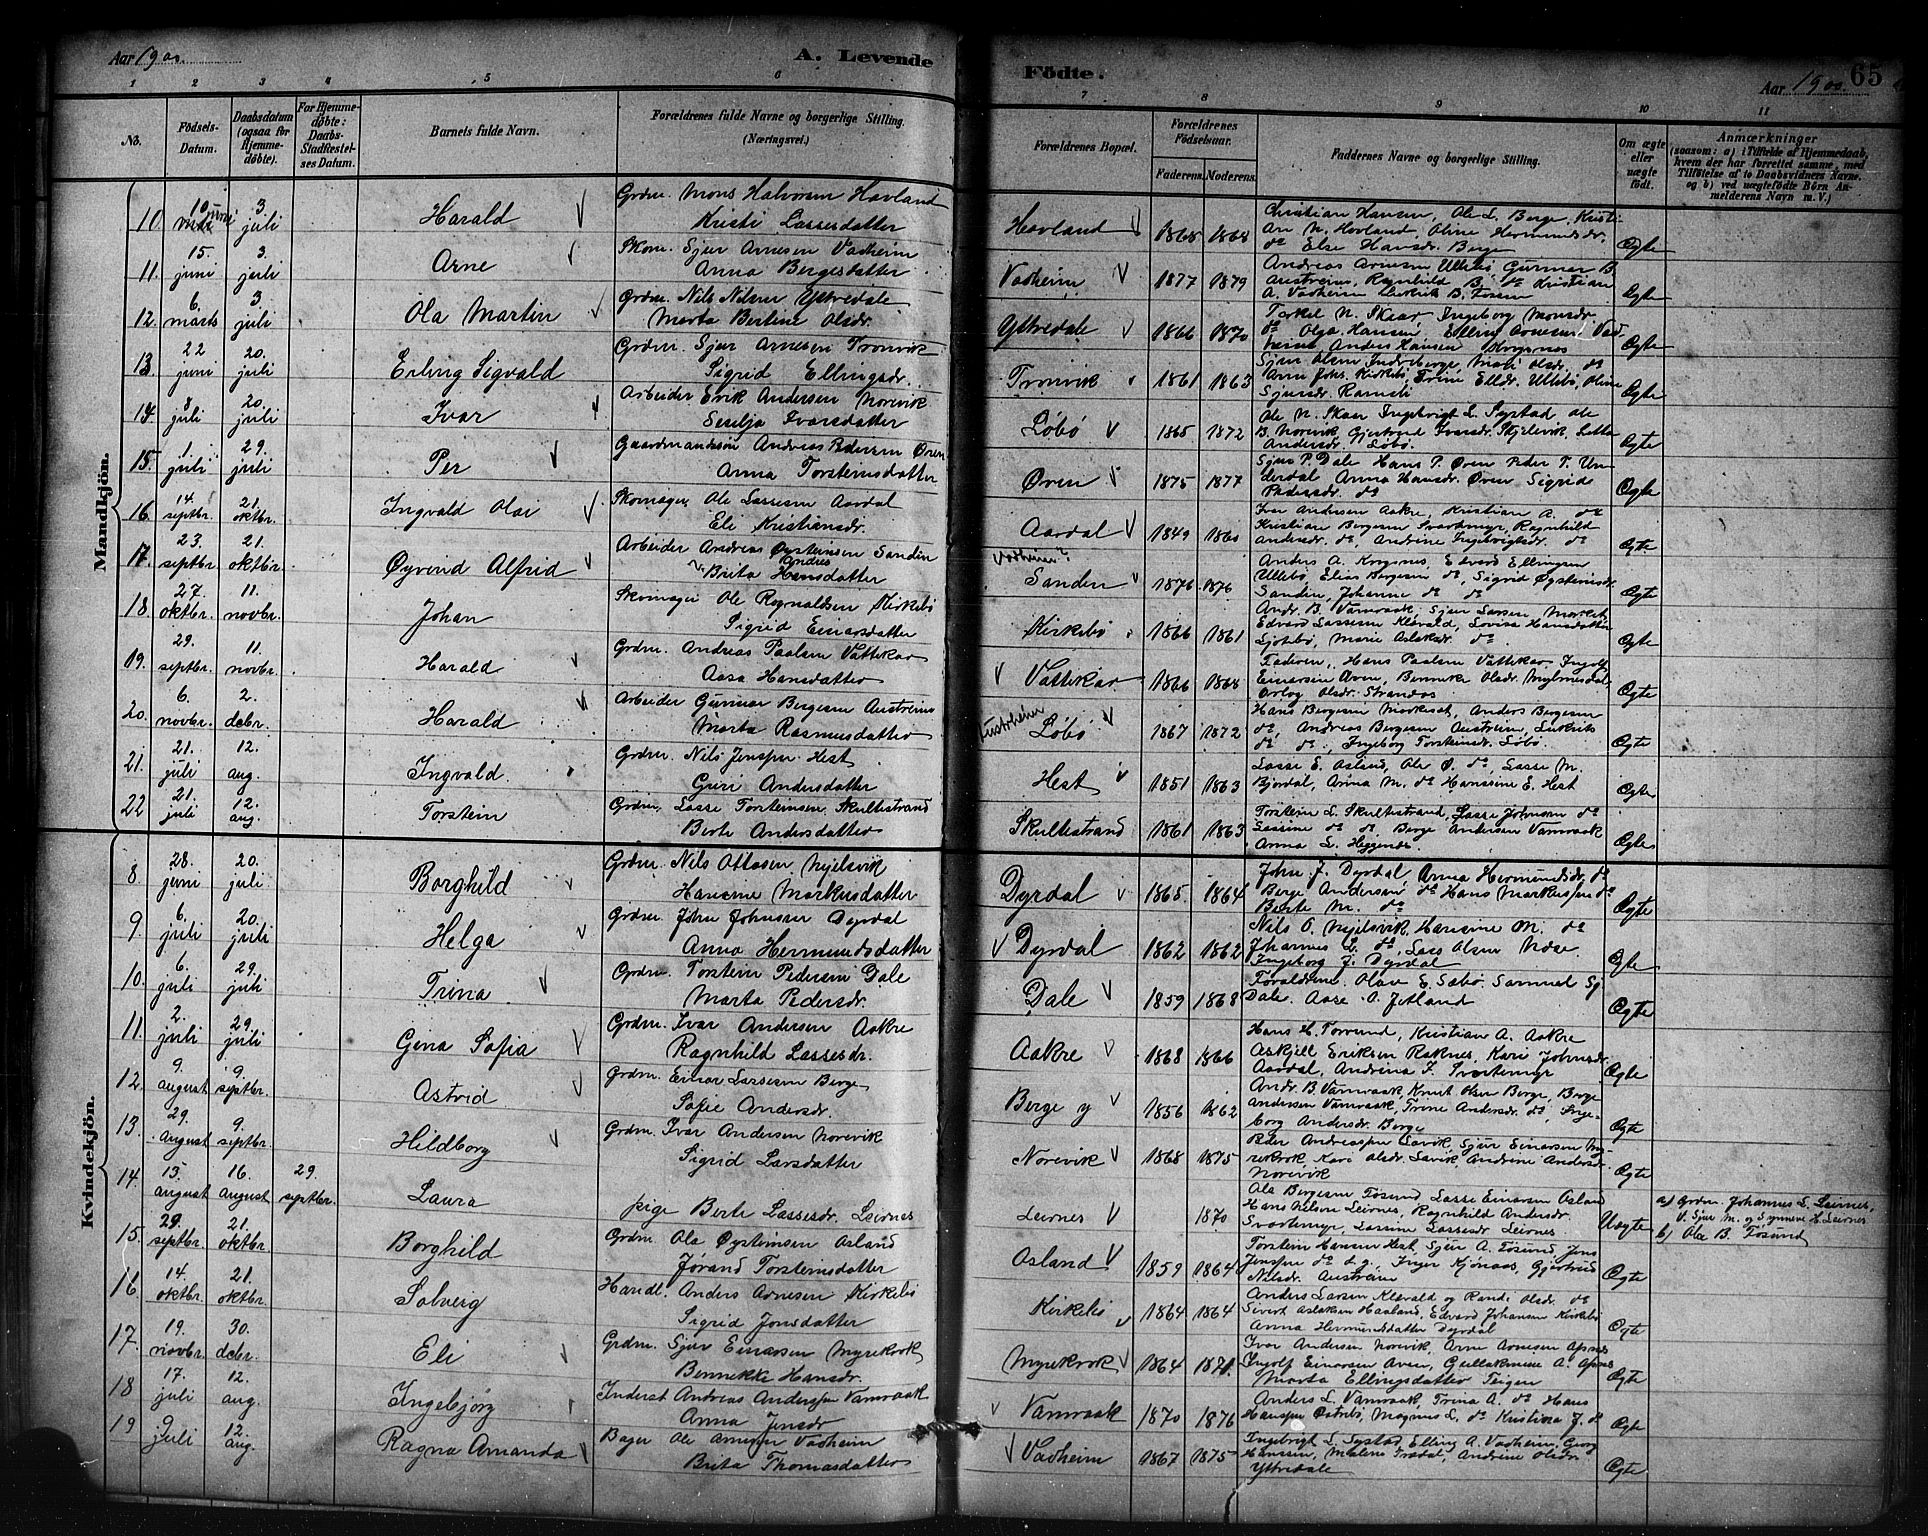 Aar 1900.
A. Levende
Födte.
Aar 1900.
65
1 2 3 4 5 6 7 8 9 10 11
No.
Födsels-Datum.
Daabsdatum (ogsaa for Hjemmedøbte).
For Hjemmedøbte: Daabs-Stadfæstelses Datum.
Barnets fulde Navn.
Forældrenes fulde Navne og borgerlige Stilling. (Næringsvei.)
Forældrenes Bopæl.
Forældrenes Födselsaar.
Faderens. Moderens.
Faddernes Navne og borgerlig Stilling.
Om ægte eller uægte födt.
Anmærkninger
(saasom: a) i Tilfælde af Hjemmedaab, hvem der har forrettet samme, med Tilföielse af to Daabsvidners Navne. og b) ved uægtefödte Börn Anmelderens Navn m. V.)
Mandkjön.
10. 10 juni 3. juli Harald Grdm. Mons Halvorsen Hovland Kristi Lassesdatter Hovland 1868 1868 Christian Hansen, Ole L. Berge, Kristian N. Hovland, Oline Hermundsdr. do Else Hansdr. Berge Ægte
11. 15. juni 3. juli Arne Skom. Sjur Arnesen Vadheim Anna Bergesdatter Vadheim 1877 1879 Andreas Arnesen Ullebö Gunnar B. Austreim, Ragnhild B. do Kristian A. Vadheim B. Ægte
12. 6. marts 3 juli Ola Martin Grdm. Nils Nilsen Yttredale Marta Bertine Olsdr. Yttredale 1866 1870 Torkel N. Skaar Ingeborg Monsdr. do Olga Hansen Elling Arnesen Anders Hansen Ægte
13. 22 juni 20. juli Erling Sigvald Grdm. Sjur Arnesen Tronvik Sigrid Ellingsdr. Tronvik 1861 1863 Sjur Olsen Indreberge, Mali Olsdr. do Arne Johs. Kirkebö, Trine Elldr. Ullebö, Oline Sjursdr. Ægte
14. juli 20. juli Ivar Arbeider Erik Andersen Norevik Seselja Ivarsdatter Løbö 1865 1872 Ole N. Skaar Ingebrigt L. Systad Ole B. Norevik Gjertrud Ivarsdr. Andersdr. Løbö. Ægte
15. 1. juli 29. juli Per Gaardmandssøn Andreas Pedersen Øren Anna Torsteinsdatter Øren 1875 1877 Sjur P. Dale Hans P. Øren Peder T. Underdal Anna Hansdr. Øren Sigrid Pedersdr. do Ægte
16. 14. septbr. 21. oktbr. Ingvald Olai Skomager Ole Lassesen Aardal Eli Kristiansdr. Aardal 1849 1860 Ivar Andersen Aakre, Kristian A. do Kristian Bergesen Svartemyr, Ragnhild Andersdr. do, Andrine Ingebrigtsdr. do Ægte
17. 23. septbr. 21. oktbr. Øyvind Alfred Arbeider Andreas Øysteinsen Sanden Brita Andreas Hansdatter Vadheim? Sanden 1876 1876 Anders A. Krogsnes, Edvard Ellingsen Ullebö, Elias Bergesen do, Sigrid Øysteinsdr. Sanden, Johanne do do Ægte
18. 27. oktbr. 11. novbr. Johan Skomager Ole Ragnaldsen Kirkebö Sigrid Einarsdatter Kirkebö 1866 1861 Andr. B. Vamraak, Sjur Larsen Edvard Lassesen Klævold, Lovisa Hansdatter Marie Aslaksdr. do Ægte
19. 29. septbr. 11. novbr. Harald Grdm. Andreas Paalsen Vattekar Aasa Hansdatter Vattekar 1866 1868 Faderen, Hans Paalsen Vattekar Ingolf Einarsen Aven, Bennike Olsdr. Olsdr. Strandos Ægte
20. 6. novbr. 2. debr. Harald Arbeider Gunnar Bergesen Austreim Marta Rasmusdatter Austreim Løbö 1867 1872 Hans Bergesen Anders Bergesen do, Andreas Bergesen Austreim, do do, Ingeborg Torsteinsdr. Løbö Ægte
21. 21. juli 12. aug. Ingvald. Grdm. Nils Jenssen Hest Guri Andersdatter Hest 1851 1863 Lasse E. Asland, Ole Ø. do Lasse M. Bjordal, Anna M. do Hanssine E. Hest Ægte
22 21. juli 12. aug. Torstein Grdm. Lasse Torsteinsen Skultestrand Berte Andersdatter Skultestrand 1861 1863 Torstein L. Skultestrand, Lasse Johnsen do Lassine do do Berge Andersen Vamraak Anna L. Ægte
Kvindekjön.
8. 28. juni 20. juli Borghild Grdm. Nils Ottosen Mjelsvik Hansine Markusdatter Dyrdal 1865 1864 John J. Dyrdal, Anna Hermundsdr. do Berge Andersen do Hans Markussen do Berte M. do Ægte
9. 6. juli 20. juli Helga Grdm. John Johnsen Dyrdal Anna Hermundsdatter Dyrdal 1862 1862 Nils O. Mjelsvik, Hansine M. do Johannes L. do, Lars Olsen Næse Ingeborg J. Dyrdal Ægte
10. 6. juli 29. juli Trina Grdm. Torstein Pedersen Dale Marta Pedersdr. Dale 1859 1868 Forældrene. Olav E. Sæbö, Samuel Sj. Dale. Aase O. Jetland Ægte
11. 2. juli 29. juli Gina Sofia Grdm. Ivar Andersen Aakre Ragnhild Lassesdr. Aakre 1868 1866 Hans H. Torvund, Kristian A. Aakre Askjell Eriksen Raknes, Kari Johnsdr. Aardal, Andrina J. Svartemyr Ægte
12. 9. august 9. septbr. Astrid Grdm. Einar Lassesen Berge Sofie Andersdr. Berge y 1856 1862 Andr. B. Vamraak, Knut Olsen Berge, Berge Andersen Vamraak, Trine Andersdr. do, Ingeborg Andersdr. Berge Ægte
13. 29. august 9. septbr. Hildborg Grdm. Ivar Andersen Norevik Sigrid Larsdatter Norevik 1868 1875 Peder Andreassen Lavik, Sjur Einarsen Myrekrok Kari Olsdr. Lavik Andrine Andersdr. Norevik Ægte
14. 15. august 16. august 29. septbr. Laura pige Berte Lassesdr. Leirnes Leirnes 1870 Ole Bergesen Fosund Lasse Einarsen Osland Hans Nilsen Leirnes, Ragnhild Andersdr. Svartemyr, Lassine Lassesdr. Leirnes Uægte a) Grdm. Johannes L. Leirnes, V. Sjur M. og Synneve H. Leirnes b) Ole B. Fosund
15. 29. septbr. 21. oktbr. Borghild Grdm. Ola Øysteinsen Osland Jørand Torsteinsdatter Osland 1859 1864 Torstein Hansen Hest, Sjur A. Fosund, Jens Jenssen do Inger Kjönaas, Gjertrud Nilsdr. Austreim Ægte
16. 14. oktbr. 21. oktbr. Solveig Handl. Anders Arnesen Kirkebö Sigrid Jonsdatter Kirkebö 1864 1864 Anders Larsen Klævold og Randi Olsdr. do Sivert Aslaksen Haaland, Edvard Johansen Kirkebö Anna Hermundsdatter Dyrdal Ægte
17. 19. novbr. 30. debr. Eli Grdm. Sjur Einarsen Myrekrok Bennikke Hansdr. Myrekrok 1864 1871. Ivar Andersen Norevik, Arne Arnesen Apnes Ingolf Einarsen Aven, A. Apnes Marta Ellingsdatter Teigen Ægte
18 17. juli 12. aug. Ingebjörg Inderst Andreas Anderssen Vamraak Anna Jensdr Vamraak 1870 1876 Anders L. Vamraak, Trina A. do Hans Hanssen Østrebö, Magnus L. do Kristina J. do Ægte
19 9 juli 12. aug. Ragna Amanda Bager Ole Arnesen Vadheim Brita Thomasdatter Vadheim 1867 1875 Ingebrigt L. Systad, Elling A. Vadheim, Georg Hanssen, Malene Andrine Olsdr. Yttredale Ægte